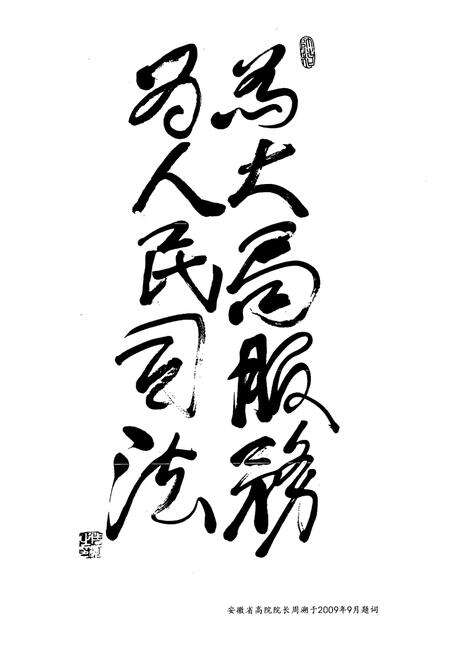 為大局服務
为人民司法
安徽省高院院长周溯于2009年9月题词